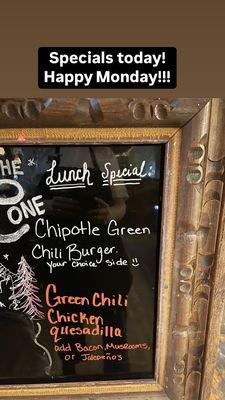 Specials today!
Happy Monday!!!
THE
ONE
Lunch Special:
Chipotle Green
Chili Burger.
Your choice side
Green Chili
Chicken
quesadilla
add Bacon, Musrooms,
or Jalepeños